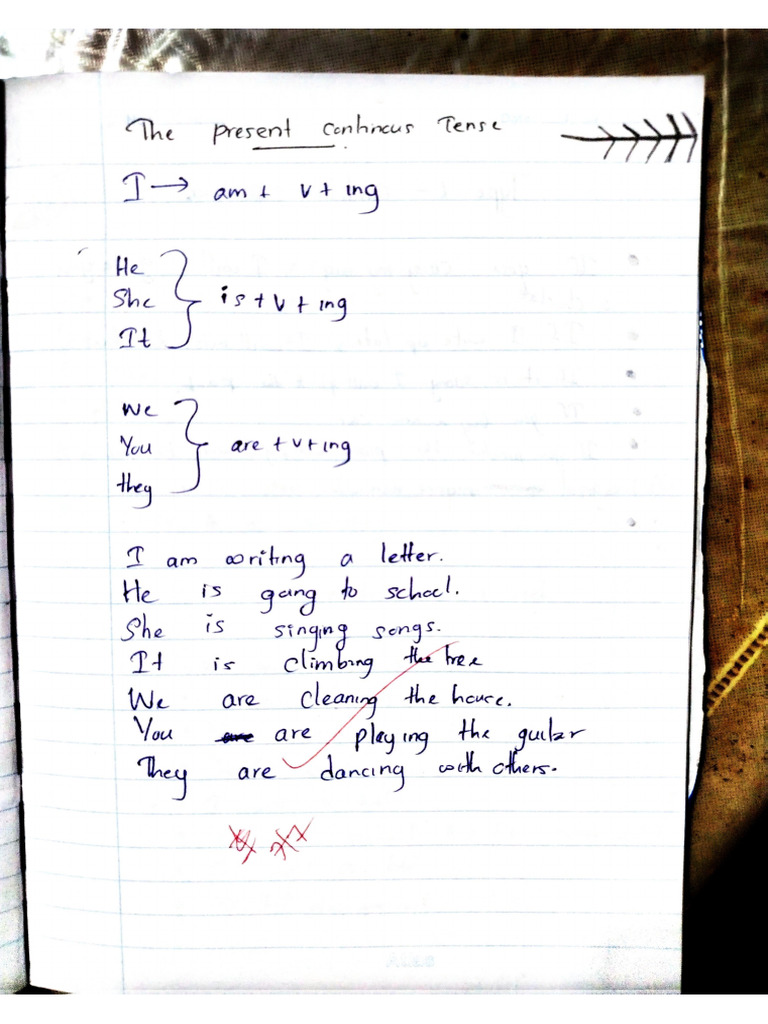 The present Continous Tense
I → am + v + ing
He
She } is + v + ing
It
We
You } are + v + ing
they
I am writing a letter.
He is going to school.
She is singing songs.
It is climbing the tree
We are cleaning the house.
You are are playing the guitar
They are dancing with others.